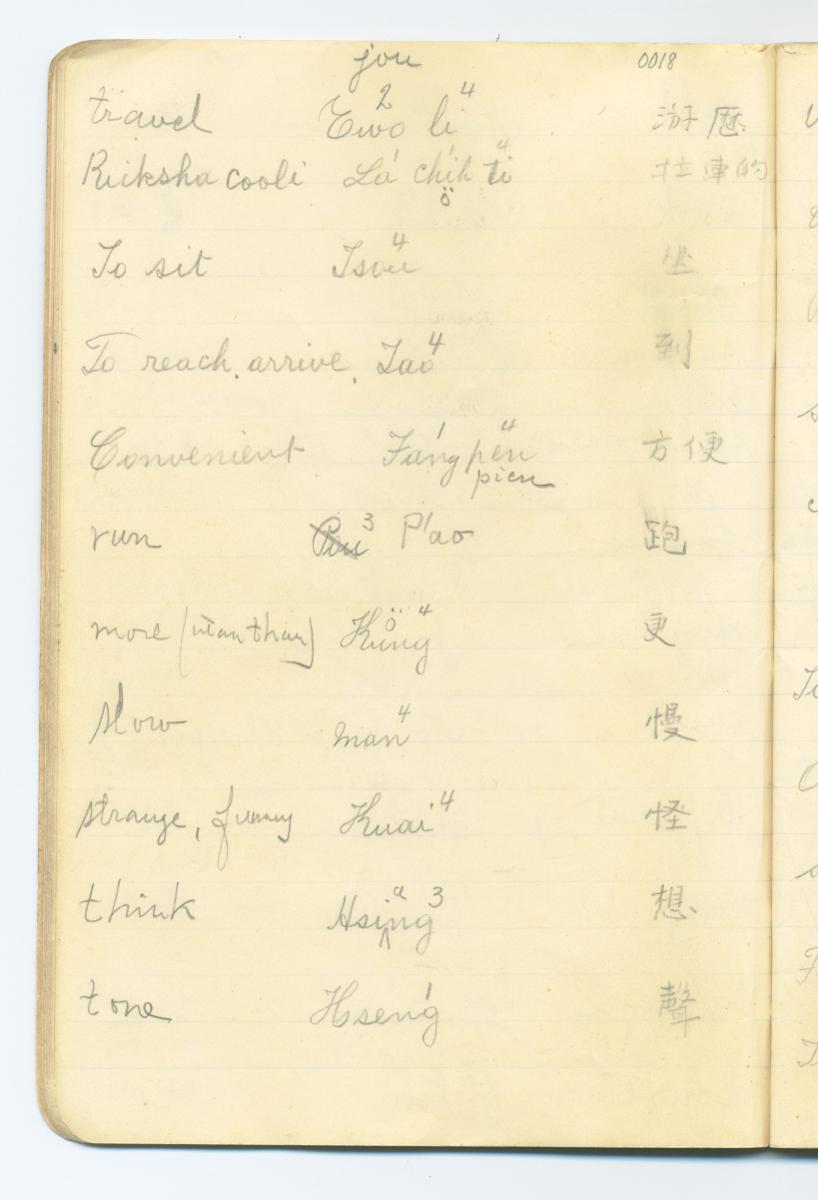 jou 0018
travel 2 li 4 游歷
Ricksha cooli Lá chíh ti 4 拉車的
ö
To sit Tsou 4 坐
To reach, arrive. Tao 4 到
Convenient Fáng pen 4 方便
pien
run 3 P'ao 跑
more ( than) Kung ö 4 更
slow man 4 慢
strange, funny Kuai 4 怪
think Hsi^ang 3 想
tone Hseng 1 聲